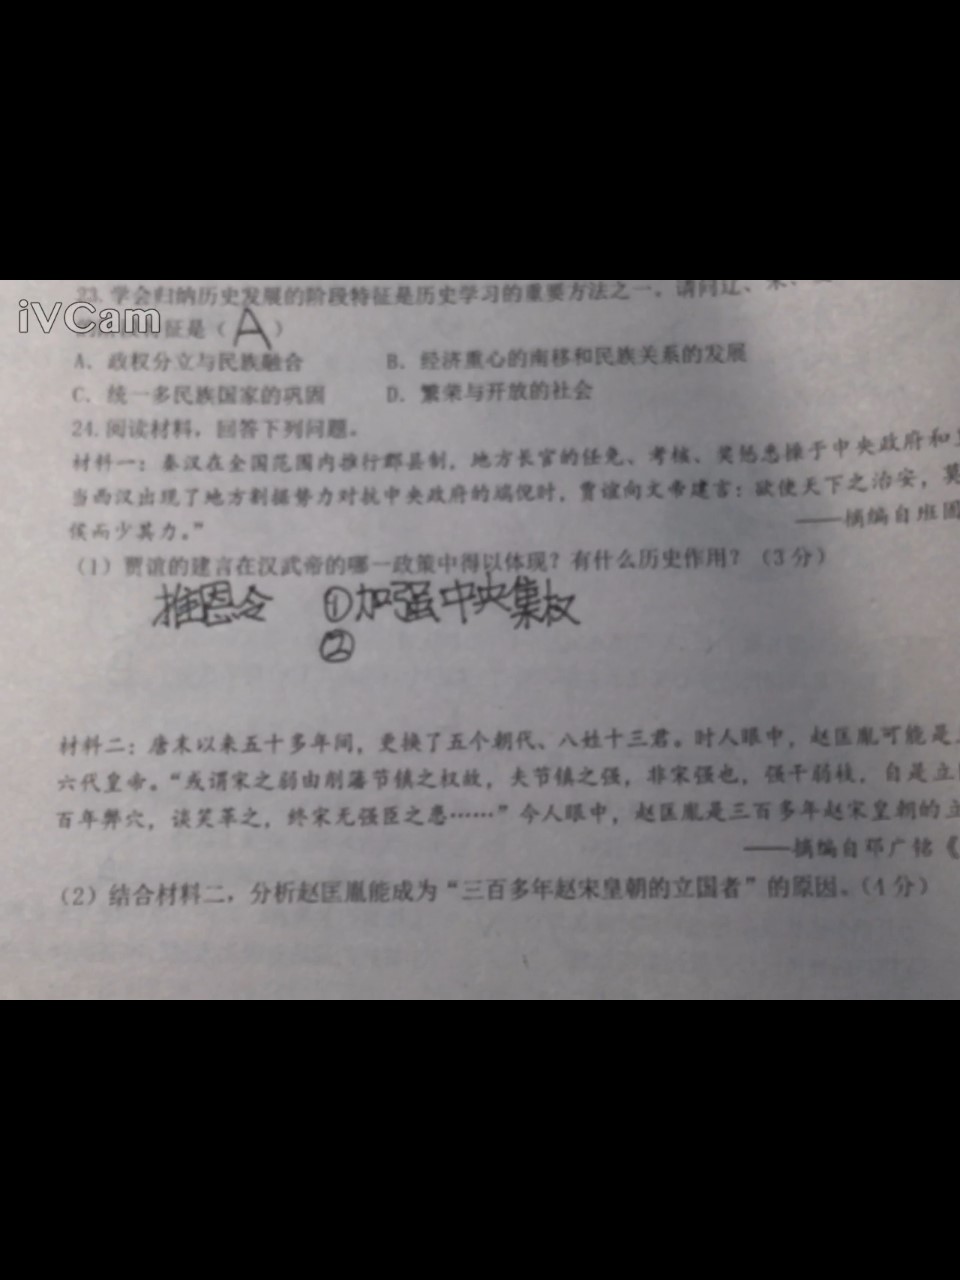 iVCam
23. 学会归纳历史发展的阶段特征是历史学习的重要方法之一。请问辽、宋、
特征是（ A ）
A. 政权分立与民族融合 B. 经济重心的南移和民族关系的发展
C. 统一多民族国家的巩固 D. 繁荣与开放的社会
24. 阅读材料，回答下列问题。
材料一：秦汉在全国范围内推行郡县制，地方长官的任免、考核、奖惩悉操于中央政府和
当西汉出现了地方割据势力对抗中央政府的端倪时，贾谊向文帝建言：欲使天下之治安，莫
侯而少其力。”
——摘编自班固
（1）贾谊的建言在汉武帝的哪一政策中得以体现？有什么历史作用？（3分）
推恩令 ①加强中央集权
②
材料二：唐末以来五十多年间，更换了五个朝代、八姓十三君。时人眼中，赵匡胤可能是
六代皇帝。“或谓宋之弱由削藩节镇之权故，夫节镇之强，非宋强也，强干弱枝，自是立
百年弊穴，谈笑革之，终宋无强臣之患……”今人眼中，赵匡胤是三百多年赵宋皇朝的立
——摘编自邓广铭《
（2）结合材料二，分析赵匡胤能成为“三百多年赵宋皇朝的立国者”的原因。（4分）